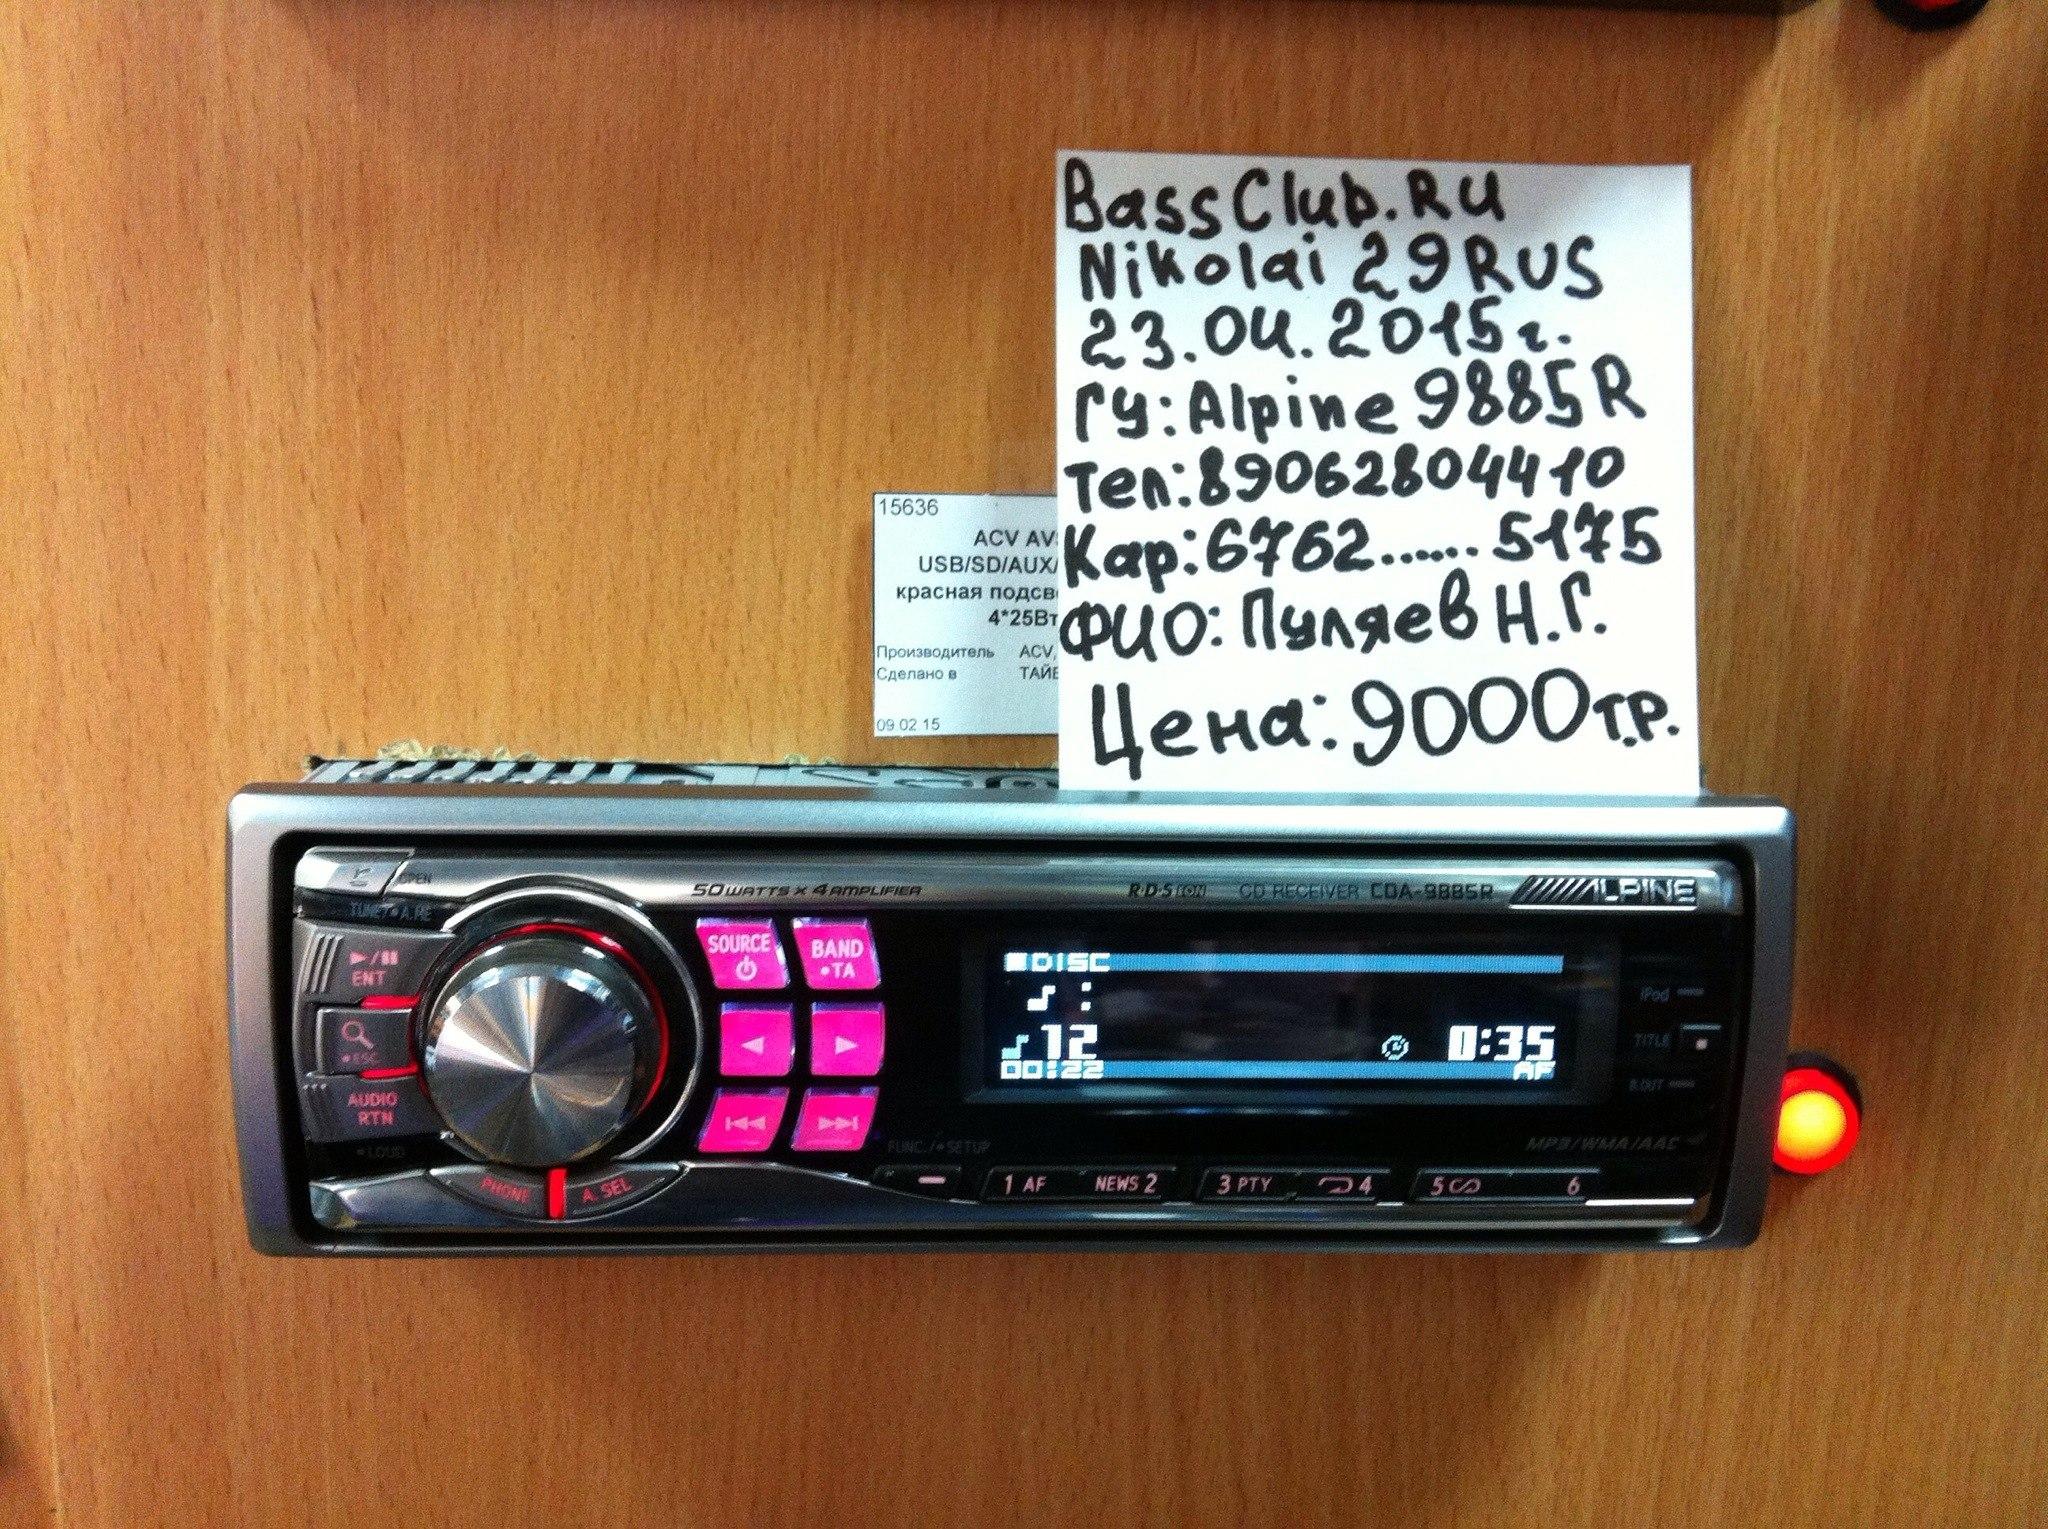 BassClub.RU
Nikolai 29RUS
23.04.2015г.
ГУ: Alpine 9885R
Тел: 89062804410
Кар: 6762...... 5175
ФИО: Пуляев Н.Г.
Цена: 9000 т.р.
15636
ACV AVS
USB/SD/AUX/
красная подсве
4*25Вт
Производитель ACV,
Сделано в ТАЙВ
09 02 15
OPEN
TUNE/•A.ME
50WATTS x 4 AMPLIFIER
R·D·S EON CD RECEIVER CDA-9885R ALPINE
ENT
•ESC
AUDIO
RTN
•LOUD
PHONE
A. SEL
SOURCE
BAND
•TA
DISC
12 0:35
00:22 AF
iPod
TITLE
B.OUT
MP3/WMA/AAC
FUNC./•SETUP
1 AF NEWS 2 3 PTY 4 5 6